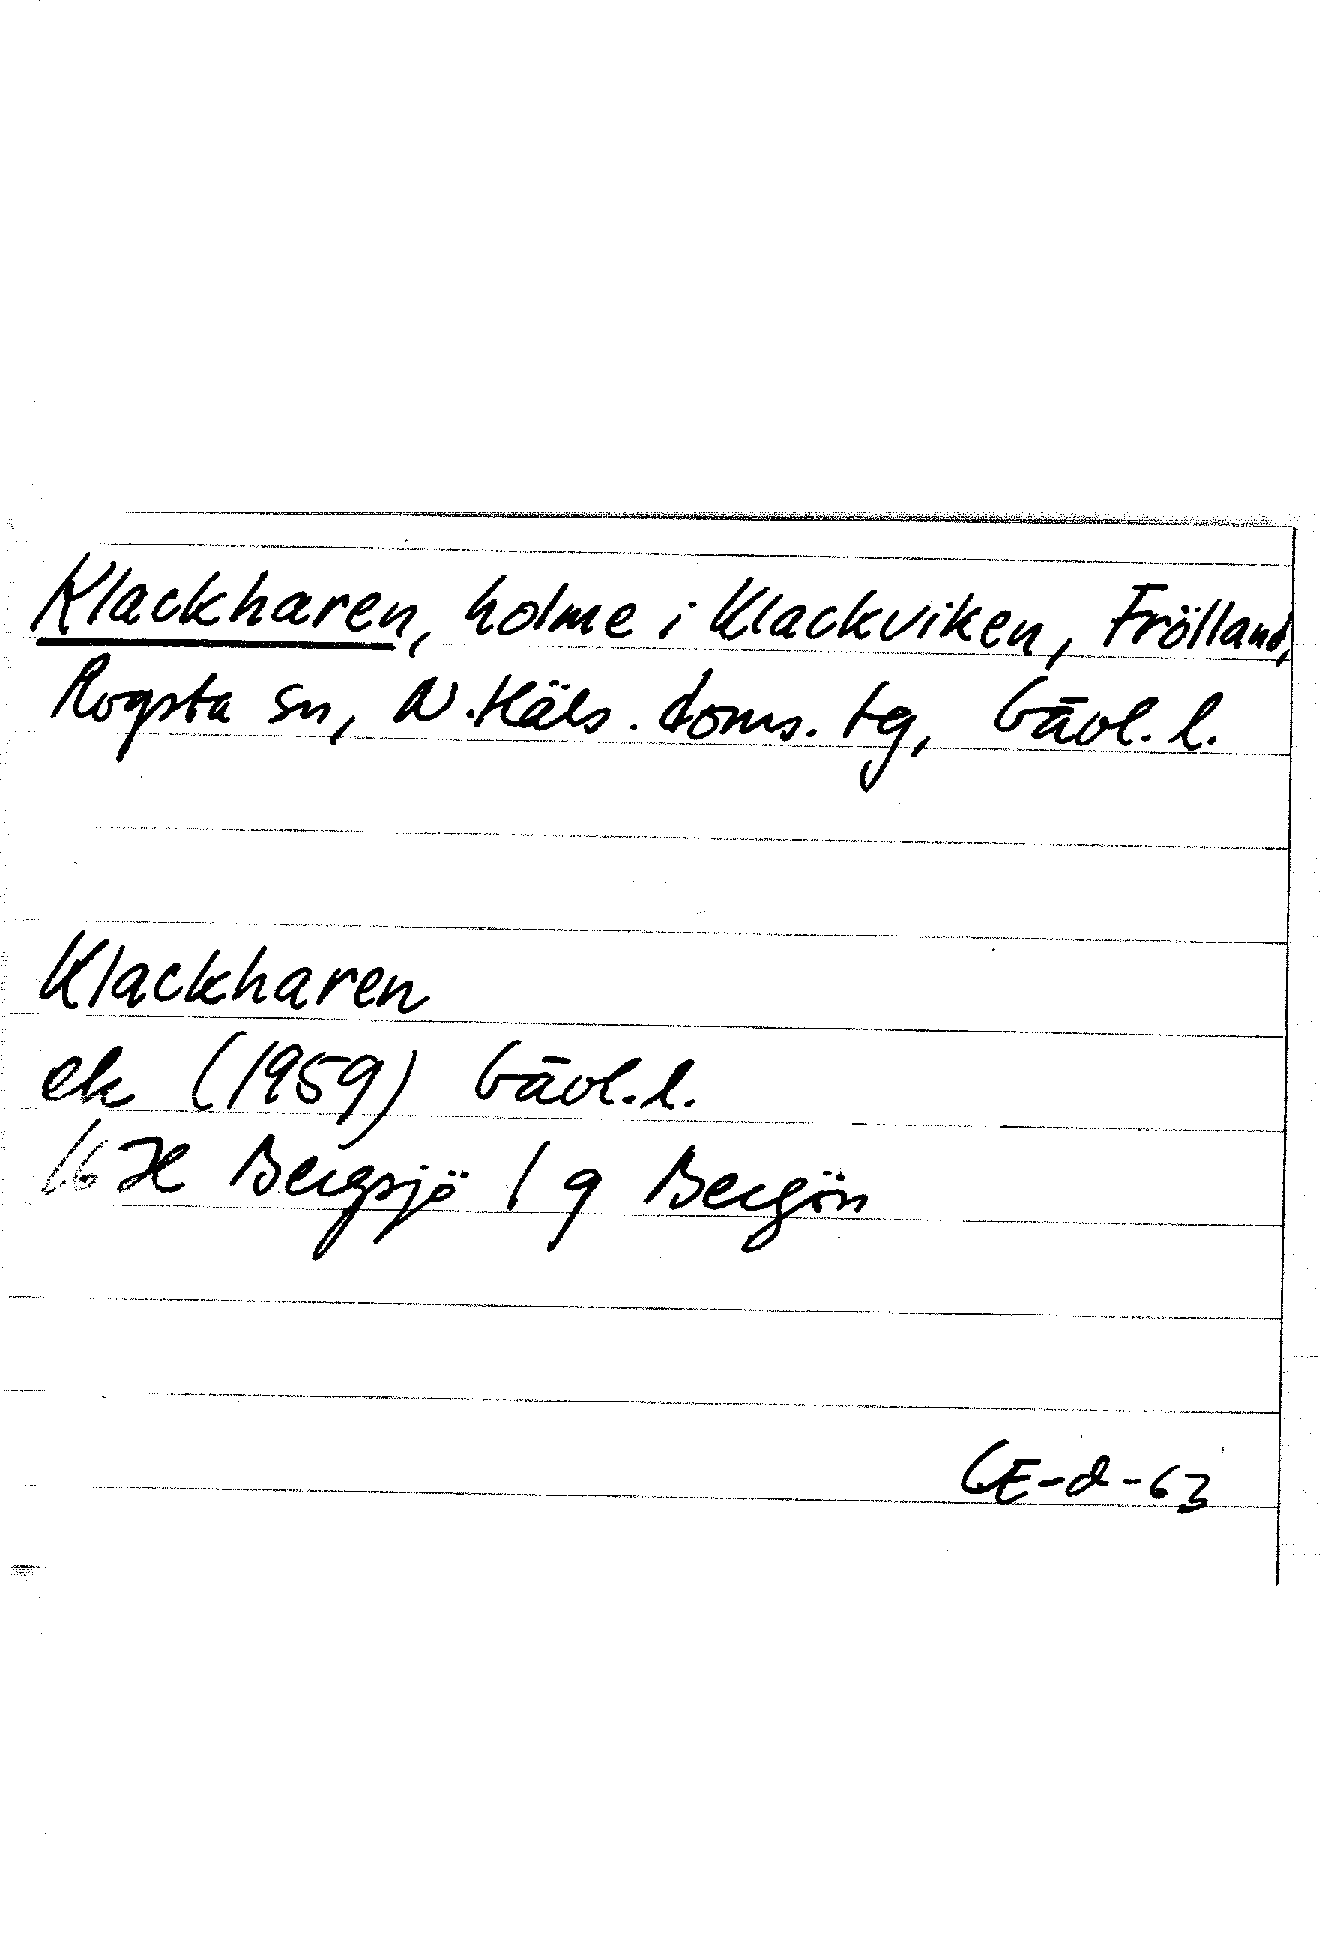 Klackharen, holme i Klackviken, Frölland,
Rogsta sn, N. Häls. doms. tg, Gävl. l.
Klackharen
ek (1959) Gävl. l.
16 H Bergsjö 1 g Bergön
CE-d-63